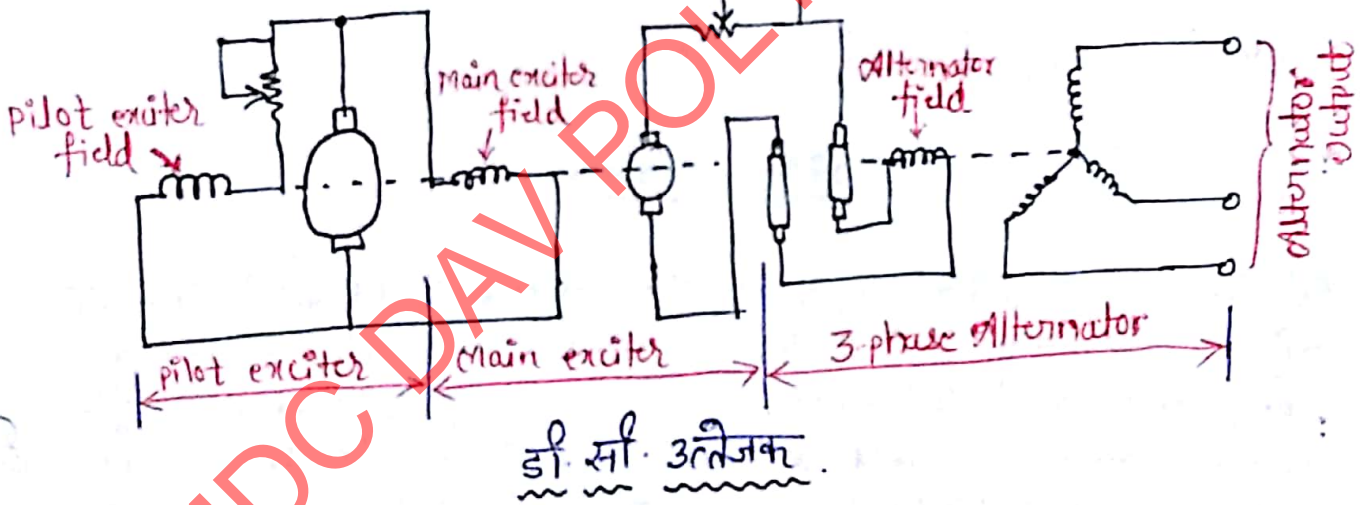 Pilot exciter
field
Main exciter
field
Alternator
field
Alternator
Output
pilot exciter
Main exciter
3-phase Alternator
डी. सी. उत्तेजक.
DC DAV POL